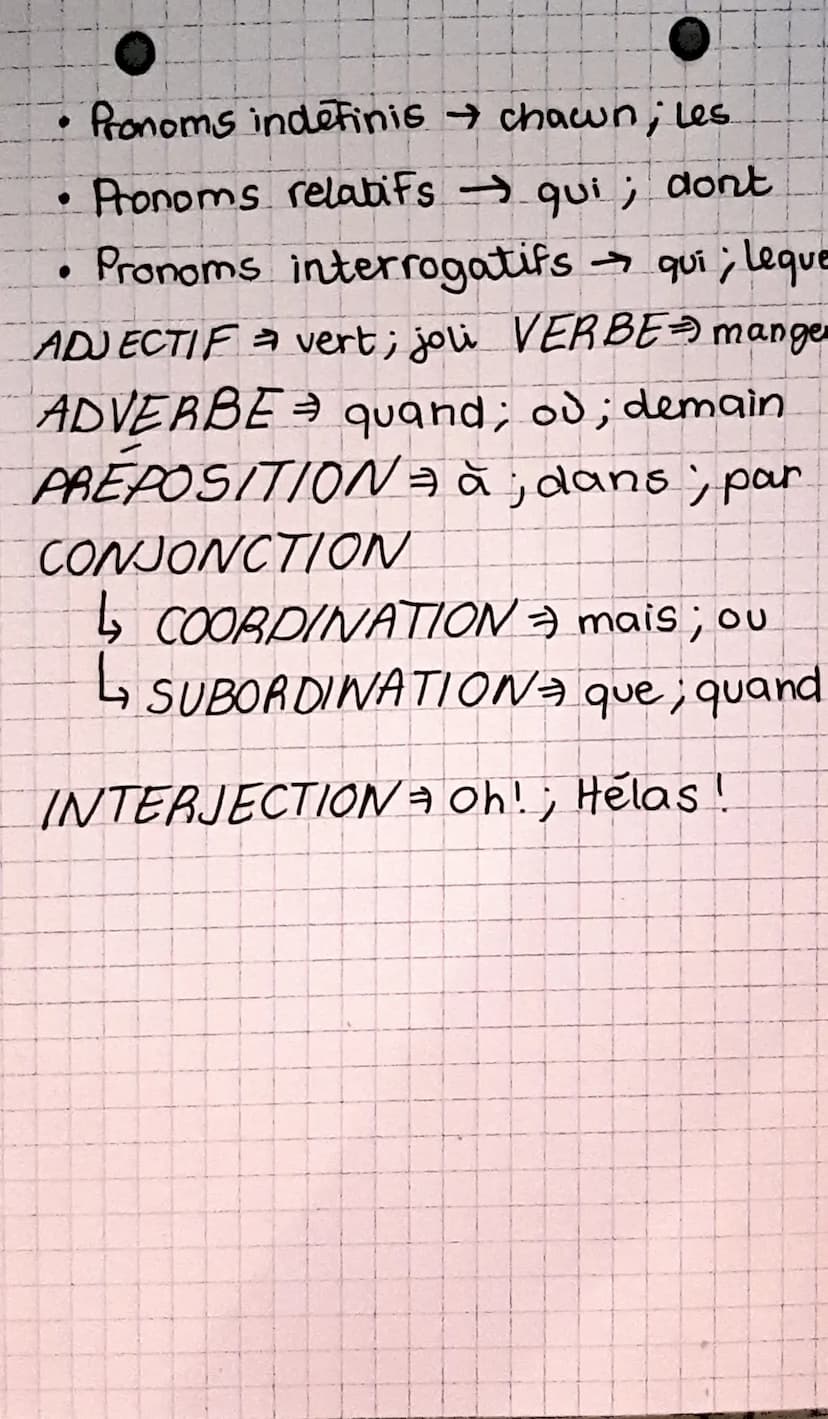 • Pronoms indéfinis → chacun ; Les
• Pronoms relatifs → qui ; dont
• Pronoms interrogatifs → qui ; leque
ADJECTIF ⇒ vert ; joli VERBE ⇒ manger
ADVERBE ⇒ quand ; où ; demain
PRÉPOSITION ⇒ à ; dans ; par
CONJONCTION
↳ COORDINATION ⇒ mais ; ou
↳ SUBORDINATION ⇒ que ; quand
INTERJECTION ⇒ Oh! ; Hélas !